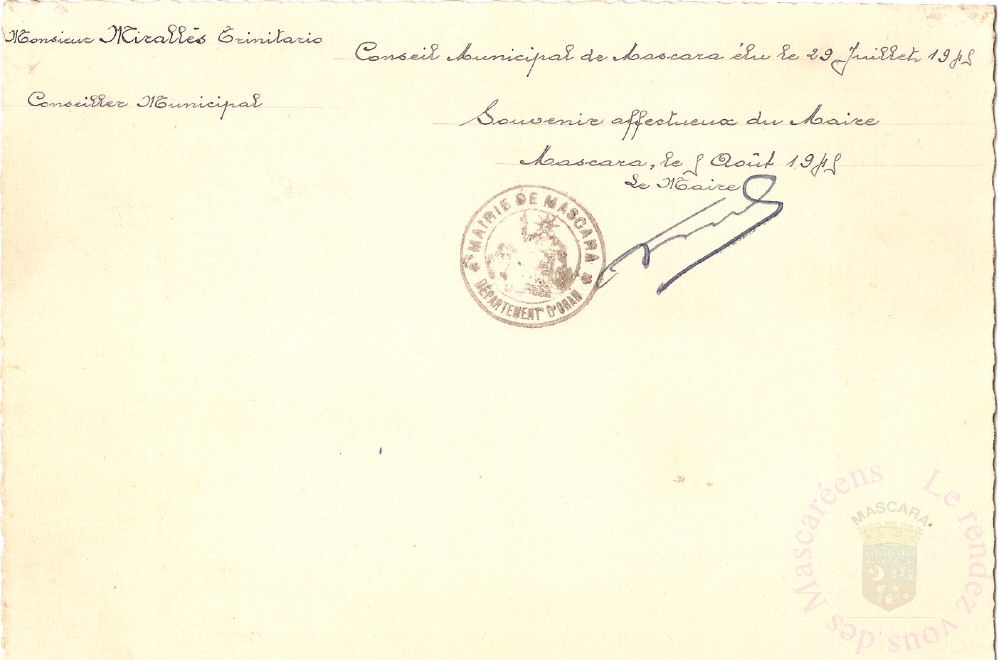 Monsieur Mirallès Trinitario
Conseiller Municipal
Conseil Municipal de Mascara élu le 29 Juillet 1945
Souvenir affectueux du Maire
Mascara, le 5 Août 1945
Le Maire
MAIRIE DE MASCARA
DÉPARTEMENT D'ORAN
Le rendez vous des Mascaréens
MASCARA